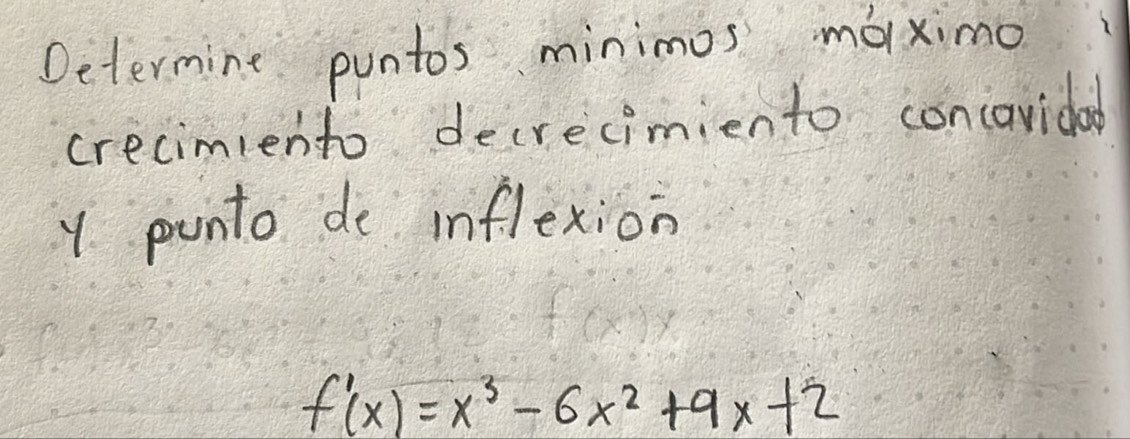 Determine puntos minimos máximo
crecimiento decrecimiento concavidad
y punto de inflexión
f(x)x
f'(x)=x³-6x²+9x+2